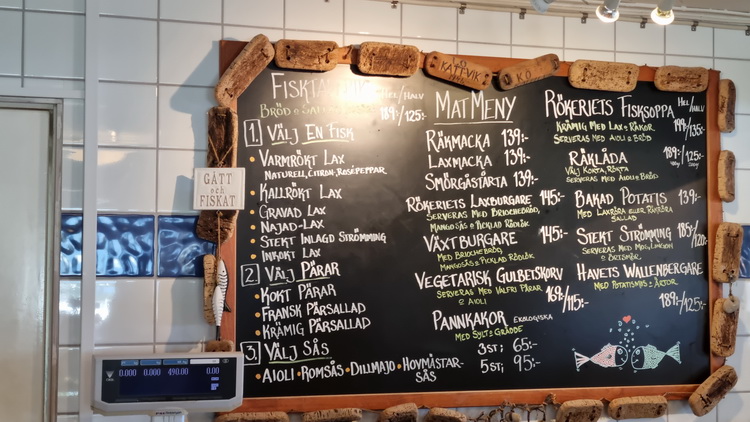 KATTVIK
KÖ
GÅTT
och
FISKAT
HEL/HALV
BRÖD &
189:-/125:-
1. VÄLJ EN FISK
• VARMRÖKT LAX
NATURELL, CITRON, ROSÉPEPPAR
• KALLRÖKT LAX
• GRAVAD LAX
• NAJAD-LAX
• STEKT INLAGD STRÖMMING
• INKOKT LAX
2. VÄLJ PÄRAR
• KOKT PÄRAR
• FRANSK PÄRSALLAD
• KRÄMIG PÄRSALLAD
3. VÄLJ SÅS
• AIOLI • ROMSÅS • DILLMAJO • HOVMÄSTAR-
SÅS
MATMENY
RÄKMACKA 139:-
LAXMACKA 139:-
SMÖRGÅSTÅRTA 139:-
RÖKERIETS LAXBURGARE 145:-
SERVERAS MED BRIOCHEBRÖD,
MANGOSÅS & PICKLAD RÖDLÖK
VÄXTBURGARE 145:-
MED BRIOCHEBRÖD
MANGOSÅS & PICKLAD RÖDLÖK
VEGETARISK GULBETSKORV
SERVERAS MED VALFRI PÄRAR 169:-/115:-
& AIOLI
PANNKAKOR EKOLOGISKA
MED SYLT & GRÄDDE
3 ST; 65:-
5 ST; 95:-
RÖKERIETS FISKSOPPA HEL/HALV
KRÄMIG MED LAX & RÄKOR 199/135:-
SERVERAS MED AIOLI & BRÖD
RÄKLÅDA 189:-/125:-
SERVERAS MED AIOLI & BRÖD
BAKAD POTATIS 139:-
MED LAXRÖRA ELLER RÄKRÖRA
SALLAD
STEKT STRÖMMING 185:-/120:-
SERVERAS MED
HAVETS WALLENBERGARE
MED POTATISMOS & ÄRTOR
189:-/125:-
0.000 0.000 490.00 0.00